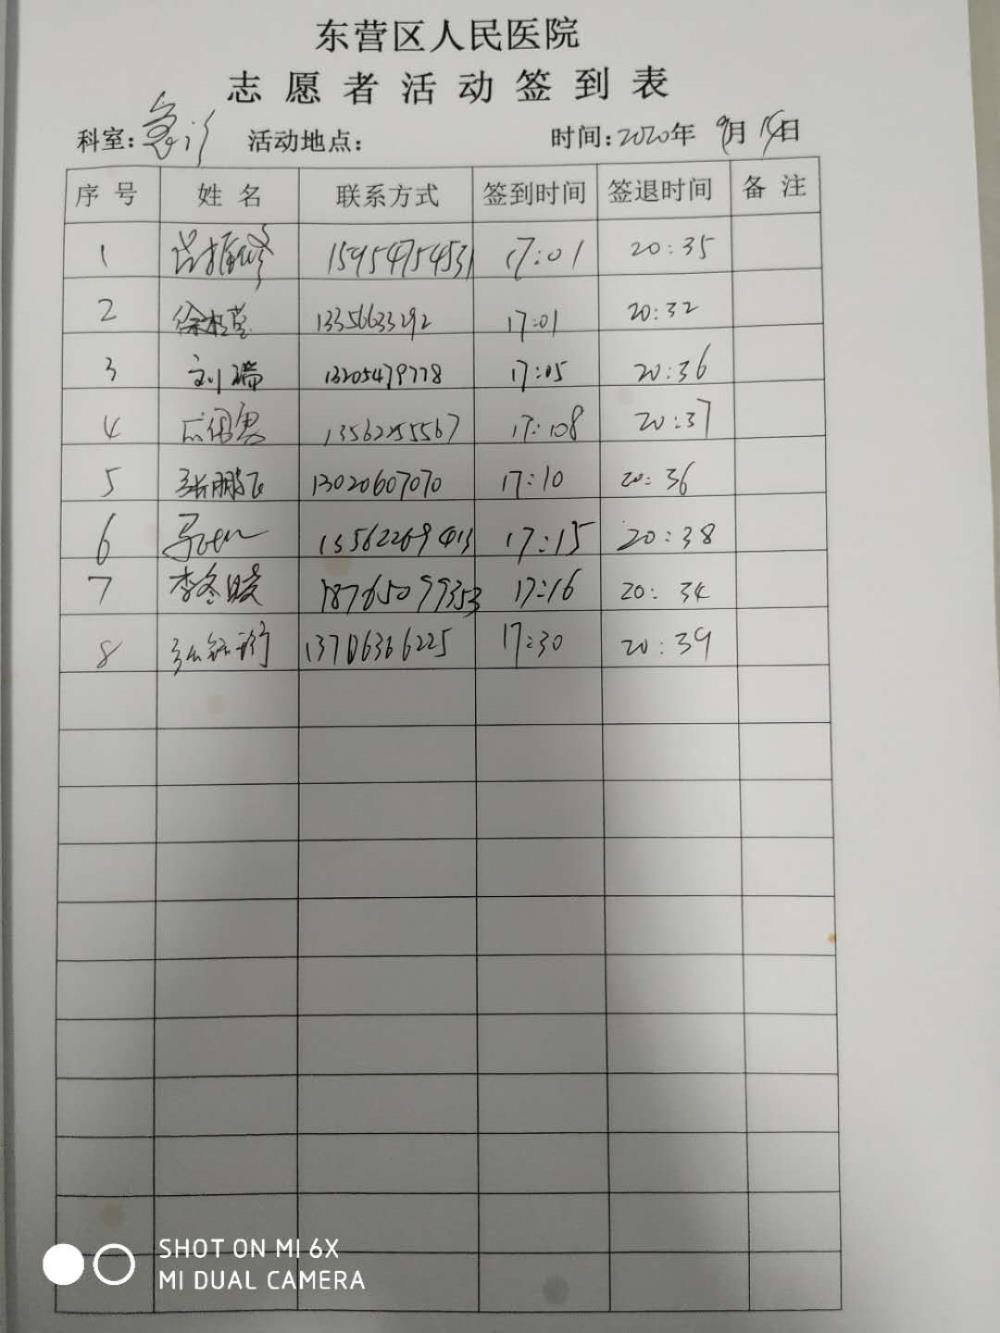 东营区人民医院
志愿者活动签到表
科室:急诊 活动地点: 时间:2020年 9月 14日
序号 姓名 联系方式 签到时间 签退时间 备注
1 15954754531 17:01 20:35
2 徐 13356633292 17:01 20:32
3 刘瑞 13205479778 17:05 20:36
4 13562255567 17:08 20:37
5 张鹏飞 13020607070 17:10 20:36
6 13562269413 17:15 20:38
7 李冬晓 18765099353 17:16 20:34
8 13706366225 17:30 20:39
SHOT ON MI 6X
MI DUAL CAMERA